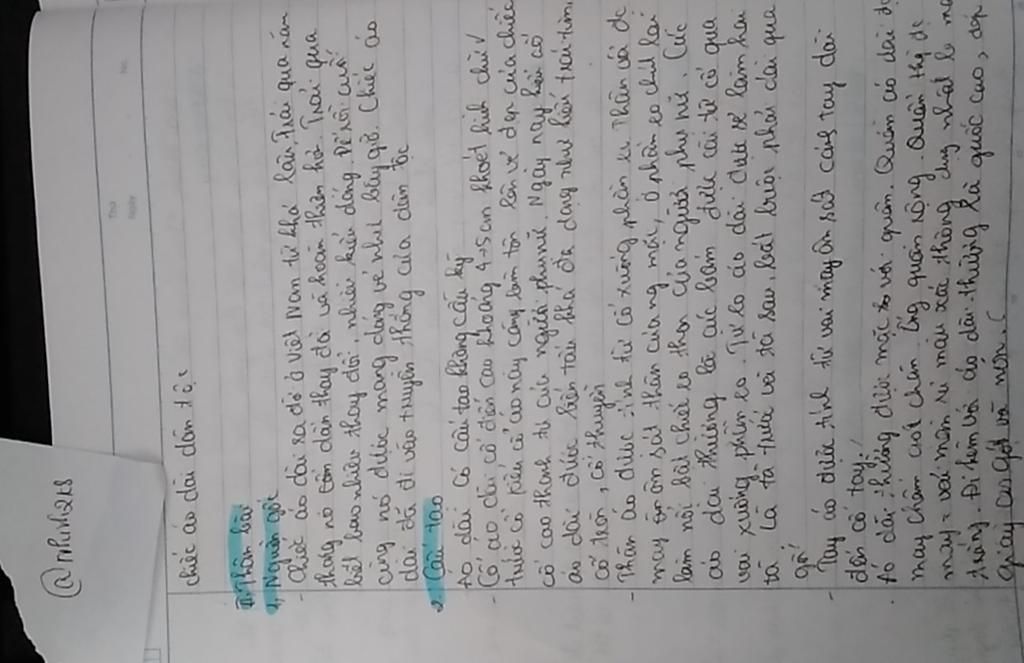 @nhinh218
Thứ
Ngày
No.
chiếc áo dài dân tộc
II. Thân bài
1, Nguồn gốc
- Chiếc áo dài ra đời ở Việt Nam từ khá lâu. Trải qua năm
tháng nó cần dần thay đổi và hoàn thiện hơn. Trải qua
biết bao nhiêu thay đổi, nhiều kiểu dáng. Để rồi cuối
cùng nó được mang dáng vẻ như bây giờ. Chiếc áo
dài đã đi vào truyền thống của dân tộc
2. Cấu tạo
Áo dài có cấu tạo không cầu kỳ
- Cổ áo dài cổ điển cao khoảng 4 → 5 cm, khoét hình chữ V
trước cổ. Kiểu cổ áo này càng làm tôn lên vẻ đẹp của chiếc
cổ cao thanh tú của người phụ nữ. Ngày nay kiểu cổ
áo dài được biến tấu khá đa dạng như kiểu trái tim,
cổ tròn, cổ thuyền
- Thân áo được tính từ cổ xuống phần eo. Thân áo dài
may ôm sát thân của người mặc, ở phần eo chiết lại
làm nổi bật chiếc eo thon của người phụ nữ. Cúc
áo dài thường là cúc bấm được cài từ cổ qua
vai xuống phần eo. Từ eo áo dài được xẻ làm hai
tà. Là tà trước và tà sau, bắt buộc phải dài qua
gối
- Tay áo được tính từ vai may ôm sát cánh tay dài
đến cổ tay.
- Áo dài thường được mặc với quần. Quần áo dài được
may chấm gót chân. Ống quần rộng. Quần thường được
may = vải mềm rũ màu xác thông dụng nhất là màu
trắng. Đi kèm với áo dài thường là guốc cao, dép
giày cao gót và nón.